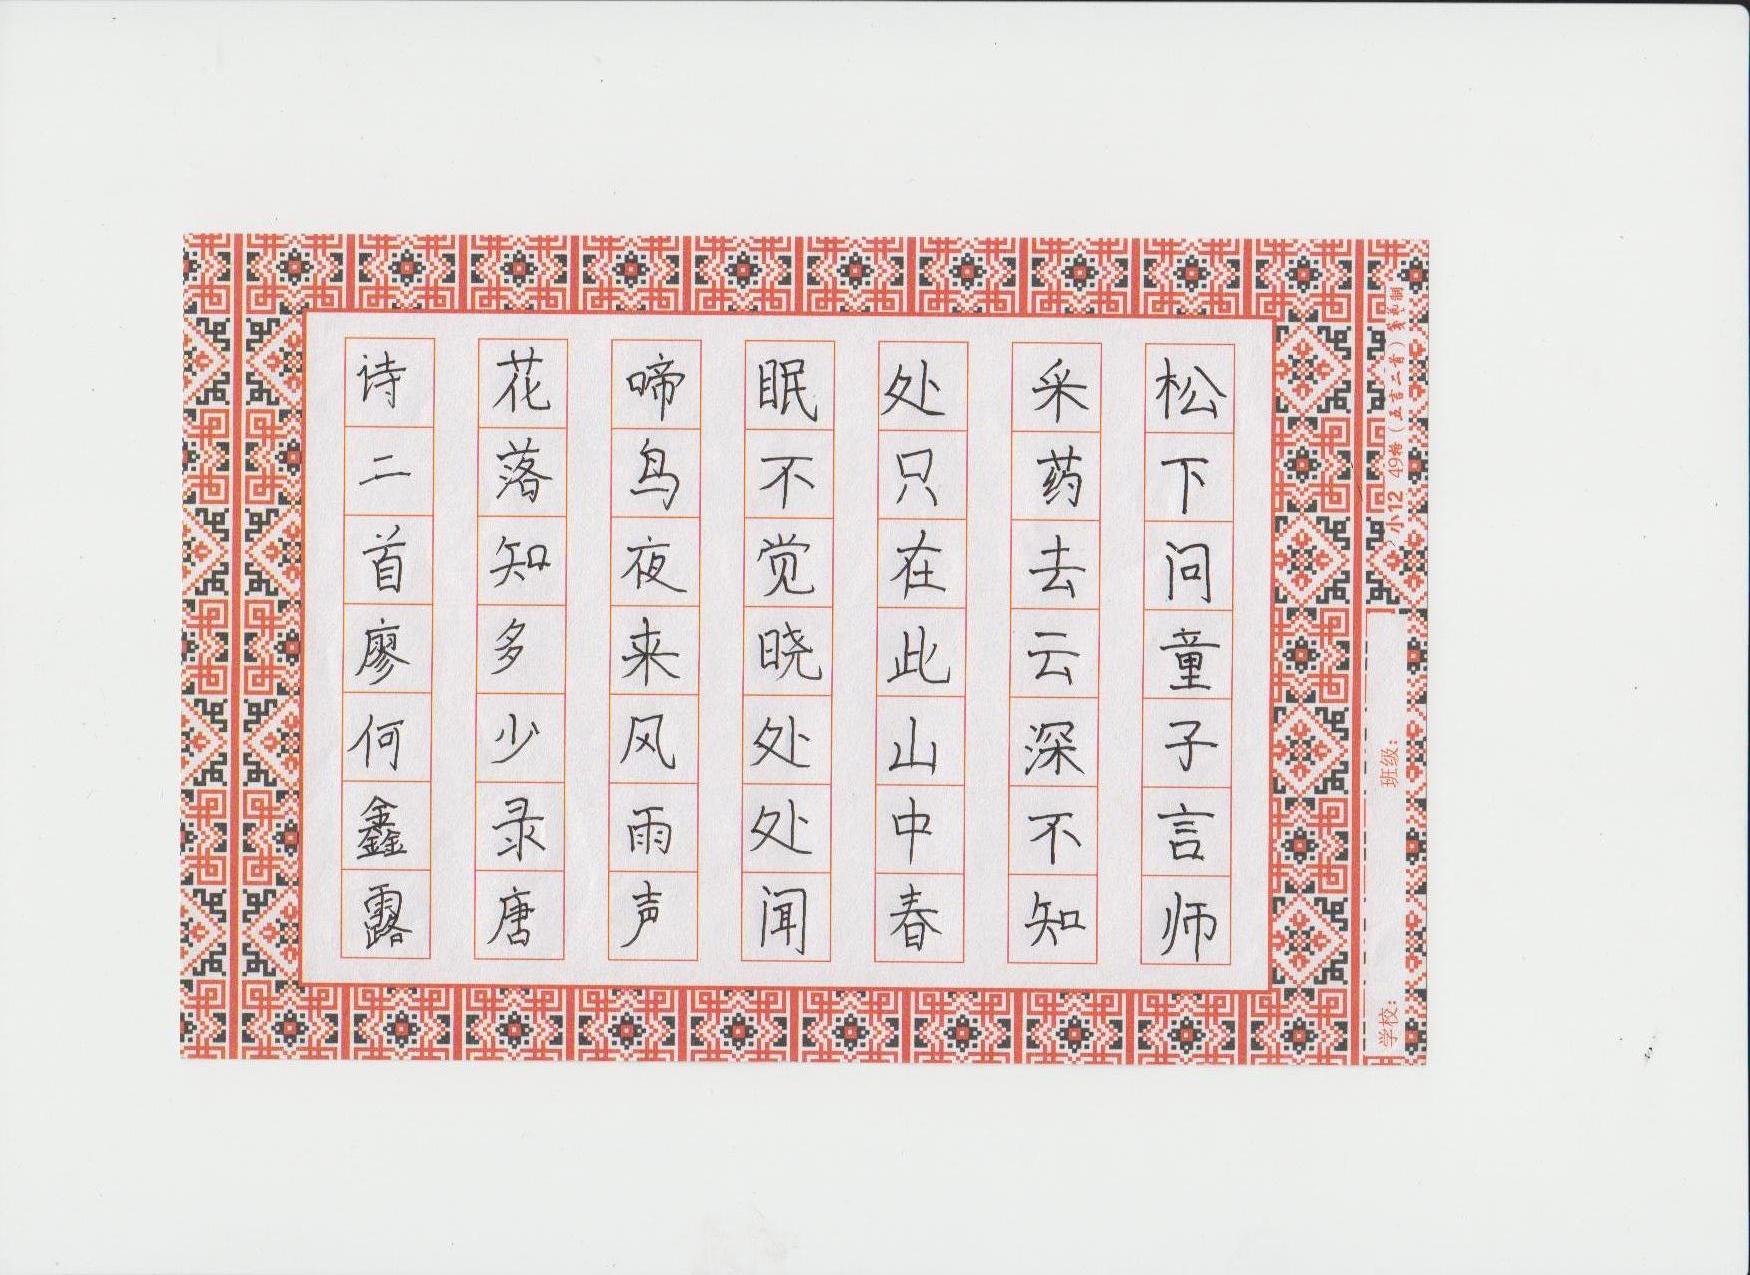 松下问童子言师
采药去云深不知
处只在此山中春
眠不觉晓处处闻
啼鸟夜来风雨声
花落知多少录唐
诗二首廖何鑫露
小12 49格（五言二首）笺艺制
班级：
学校：